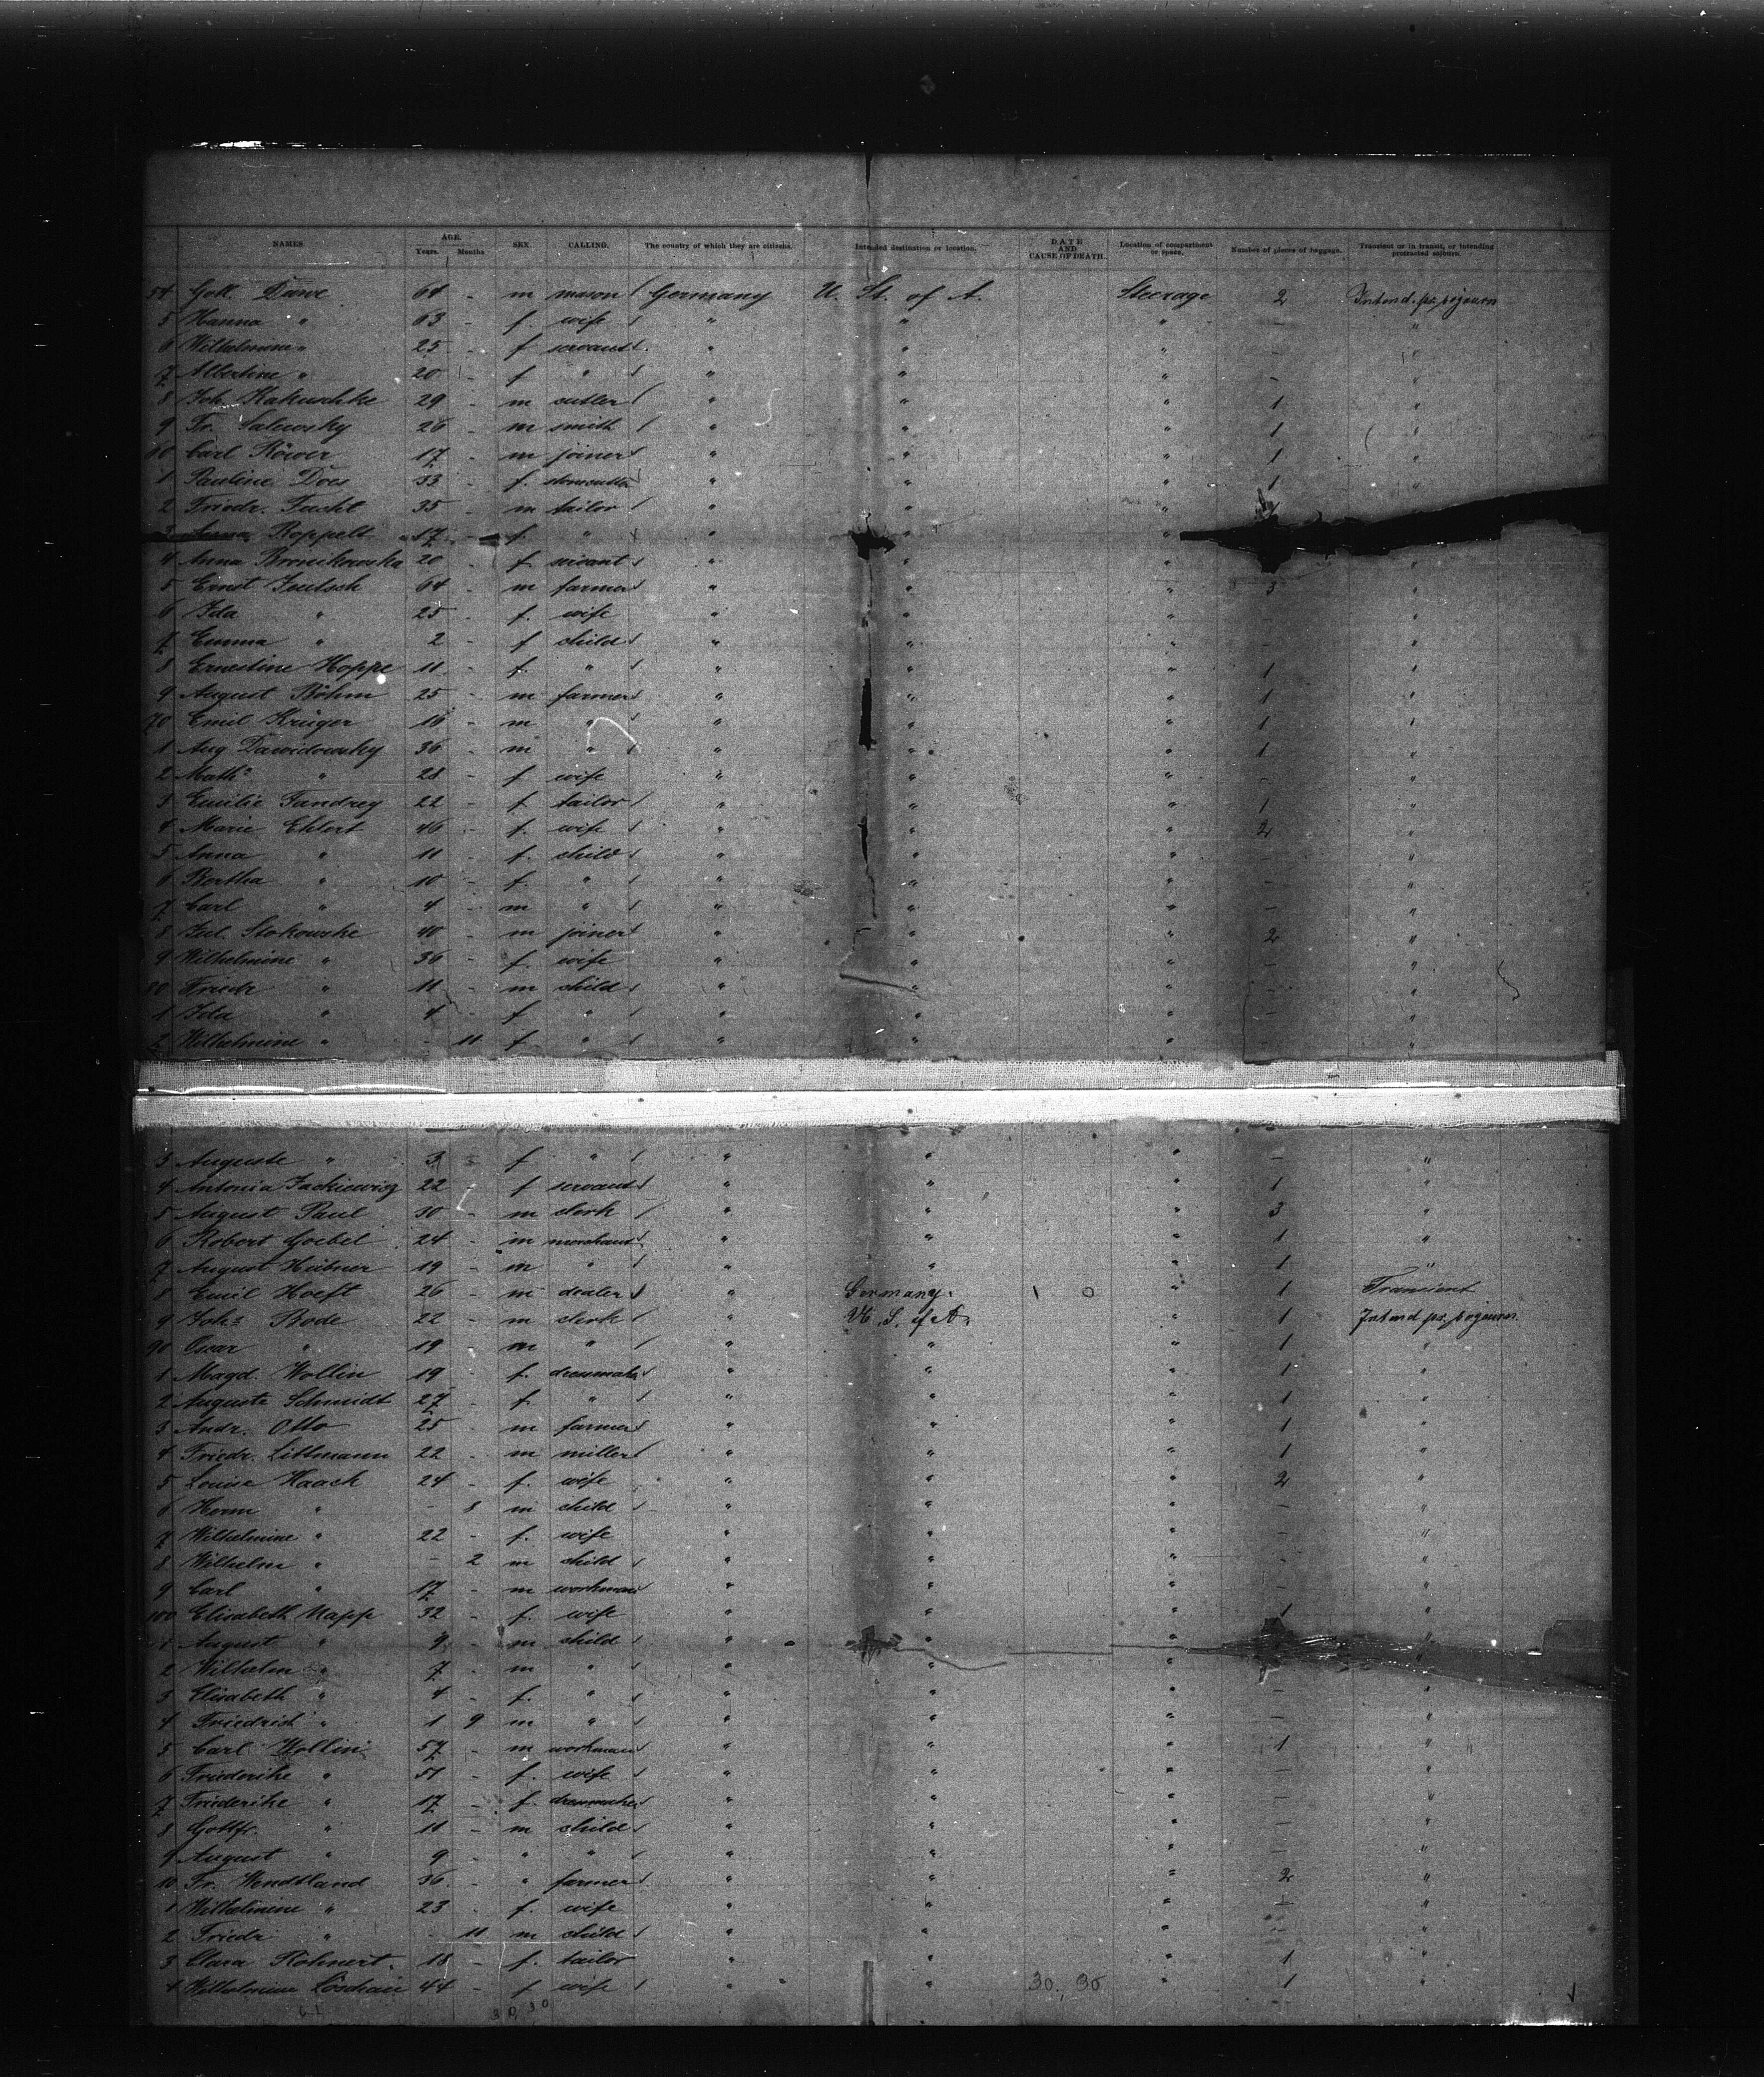 NAMES AGE. Years. Months SEX. CALLING. The country of which they are citizens. Intended destination or location. DATE AND CAUSE OF DEATH. Location of compartment or space. Number of pieces of baggage. Transient or in transit, or intending protracted sojourn.
54 Gott. Dawe 64 - m mason Germany U. St. of A. Steerage 2 Intend. pr. sojourn
5 Hanna " 63 - f. wife " " " "
6 Wilhelmine " 25 - f servant " " " - "
7 Albertine " 20 - f " " " " - "
8 Joh. Kakuschke 29 - m cutler " " " 1 "
9 Fr. Salewsky 26 - m smith " " " 1 "
60 Carl Röwer 17 - m joiner " " " 1 "
1 Pauline Does 33 - f. " " " 1 "
2 Friedr. Fucht 35 - m tailor " " "
3 Anna Roppelt 17 - f. " " " "
4 Anna Bronikowska 20 - f. servant " " " "
5 Ernst Jeutsch 64 - m farmer " " " 3 "
6 Ida " 25 - f. wife " " " - "
7 Emma " 2 - f child " " " - "
8 Ernestine Hoppe 11 - f. " " " " 1 "
9 August Böhm 25 - m farmer " " " 1 "
70 Emil Krüger 16 - m " " " " 1 "
1 Aug Dawidowsky 36 - m " " " " 1 "
2 Math. " 28 - f wife " " " - "
3 Emilie Fandrey 22 - f tailor " " " 1 "
4 Marie Ehlert 46 - f. wife " " " 2 "
5 Anna " 11 - f. child " " " - "
6 Bertha " 10 - f. " " " " - "
7 Carl " 4 - m " " " " - "
8 Jul. Stokowske 40 - m joiner " " " 2 "
9 Wilhelmine " 36 - f. wife " " " - "
80 Friedr " 11 - m child " " " - "
1 Ida " 4 - f " " " " - "
2 Wilhelmine " - 11 f " " " " - "
3 Auguste " 3 - f " " " " - "
4 Antonia Jackiewicz 22 f servant " " " 1 "
5 August Paul 30 - m clerk " " " 3 "
6 Robert Goebel 24 - m merchant " " " 1 "
7 August Hübner 19 - m " " " " 1 "
8 Emil Hoeft 26 - m dealer " Germany. 1 0 " 1 Transient
9 Johs Bode 22 - m clerk " U. S. of A. " 1 Intend pr. sojourn.
90 Oscar " 19 - m " " " " 1 "
1 Magd. Wollin 19 - f. dressmaker " " " 1 "
2 Auguste Schmidt 27 - f. " " " " 1 "
3 Andr. Otto 25 - m farmer " " " 1 "
4 Friedr. Littmann 22 - m miller " " " 1 "
5 Louise Haack 24 - f. wife " " " 2 "
6 Herm " - 8 m child " " " - "
7 Wilhelmine " 22 - f. wife " " " - "
8 Wilhelm " - 2 m child " " " - "
9 Carl " 17 - m workman " " " - "
100 Elisabeth Kapp 32 - f. wife " " " 1 "
1 August " 9 - m child " " " "
2 Wilhelm " 7 - m " " " " "
3 Elisabeth " 4 - f. " " " " - "
4 Friedrich " 1 9 m " " " " - "
5 Carl Wollin 57 - m workman " " " 1 "
6 Friederike " 51 - f. wife " " " - "
7 Friederike " 17 - f. dressmaker " " " - "
8 Gottfr. " 11 - m child " " " - "
9 August " 9 - " " " " " - "
10 Fr. Wendtland 36 - " farmer " " " 2 "
1 Wilhelmine " 23 - f. wife " " " - "
2 Friedr " - 11 m child " " " - "
3 Clara Röhnert. 18 - f. tailor " " " 1 "
4 Wilhelmine Löschau 44 - f wife " " 30, 30 " 1 "
61 30,30